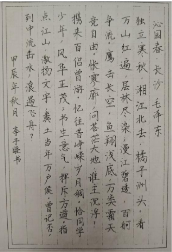 沁园春 长沙 毛泽东
独立寒秋，湘江北去，橘子洲头，看
万山红遍，层林尽染，漫江碧透，百舸
争流，鹰击长空，鱼翔浅底，万类霜天
竞自由，怅寥廓，问苍茫大地，谁主沉浮，
携来百侣曾游，忆往昔峥嵘岁月稠，恰同学
少年，风华正茂，书生意气，挥斥方遒，指
点江山，激扬文字，粪土当年万户侯，曾记否，
到中流击水，浪遏飞舟？
甲辰年秋月